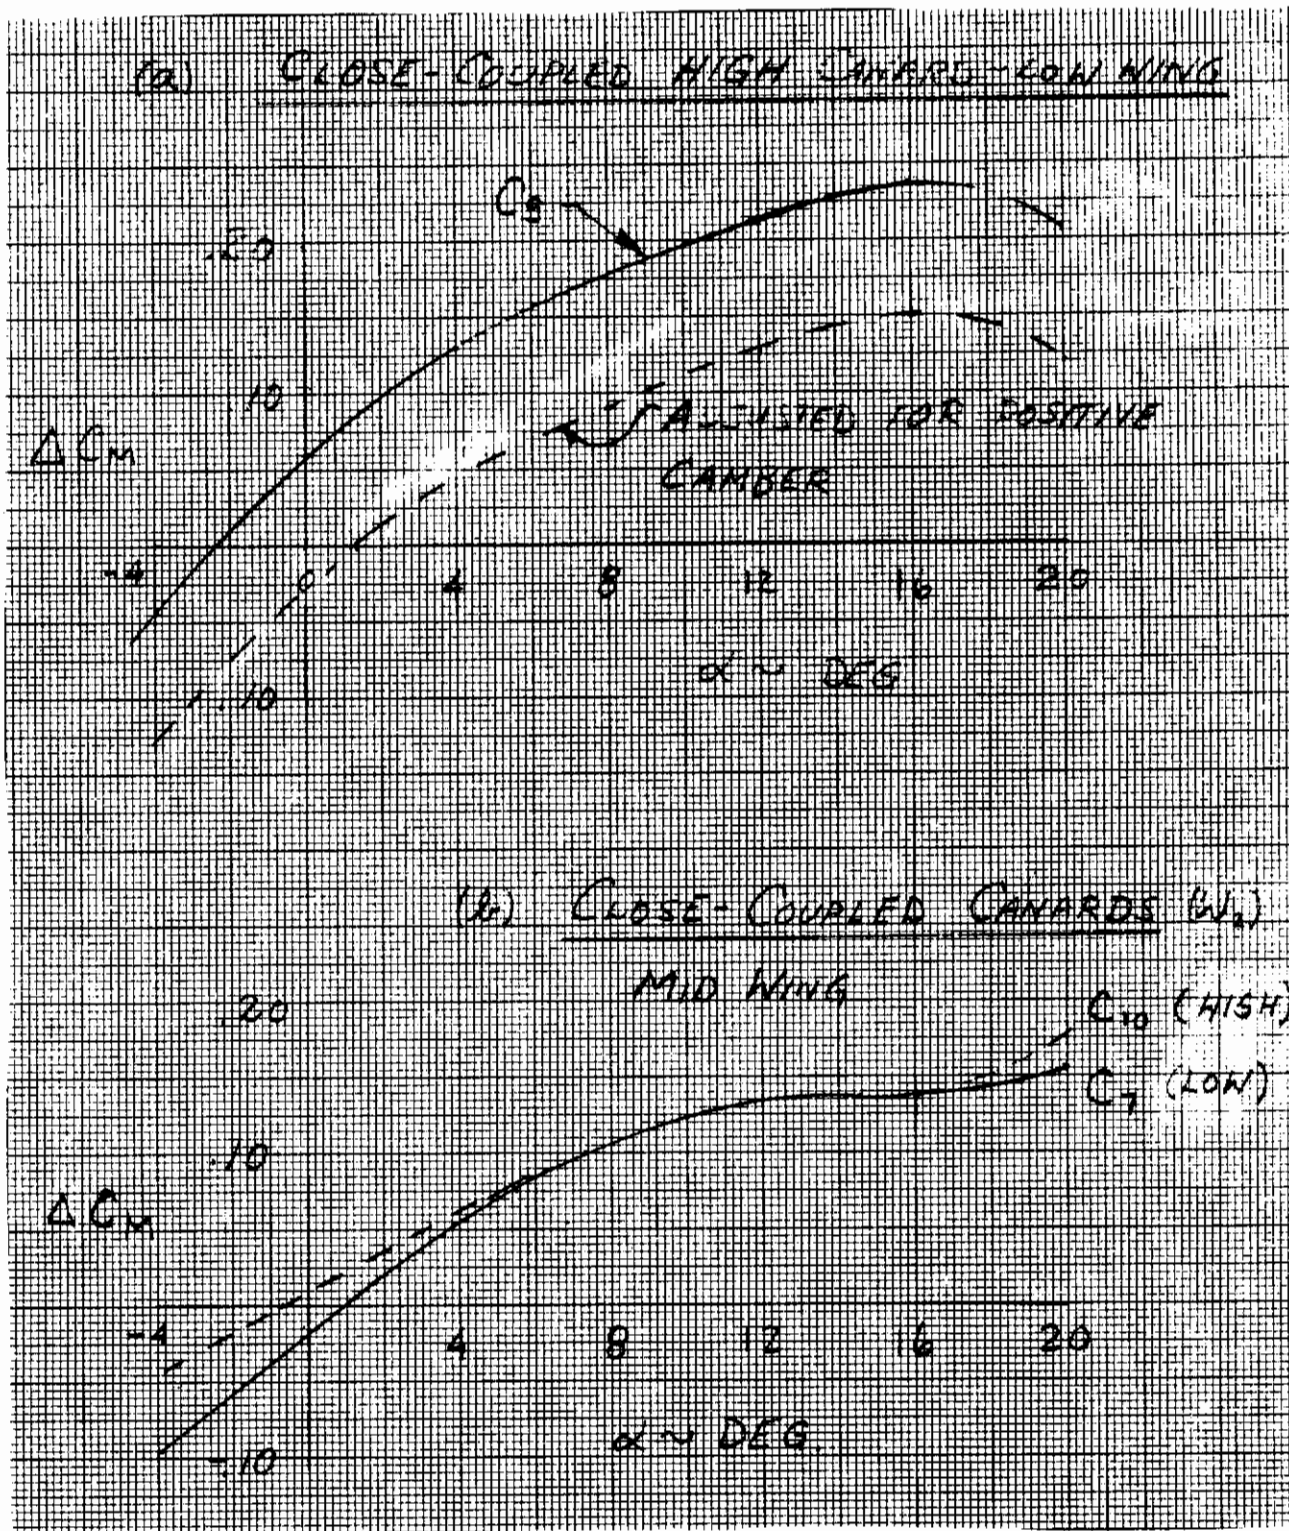 (a) CLOSE-COUPLED HIGH CANARD-LOW WING
.20
.10
ΔCM
ADJUSTED FOR POSITIVE
CAMBER
-4 0 4 8 12 16 20
α ~ DEG
.10
(b) CLOSE-COUPLED CANARDS (W2)
MID WING
.20
C10 (HIGH)
C7 (LOW)
.10
ΔCM
-4 4 8 12 16 20
α ~ DEG.
-.10